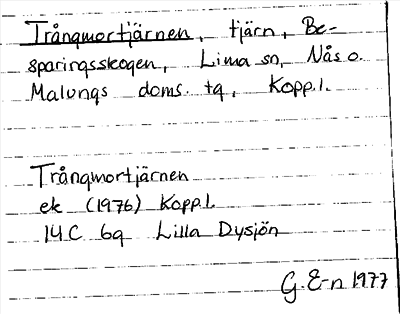 Trångmortjärnen, tjärn, Be-
sparingsskogen, Lima sn, Nås o.
Malungs doms. tg, Kopp.l.
Trångmortjärnen
ek (1976) Kopp.l.
14C 6g Lilla Dysjön
G. E-n 1977